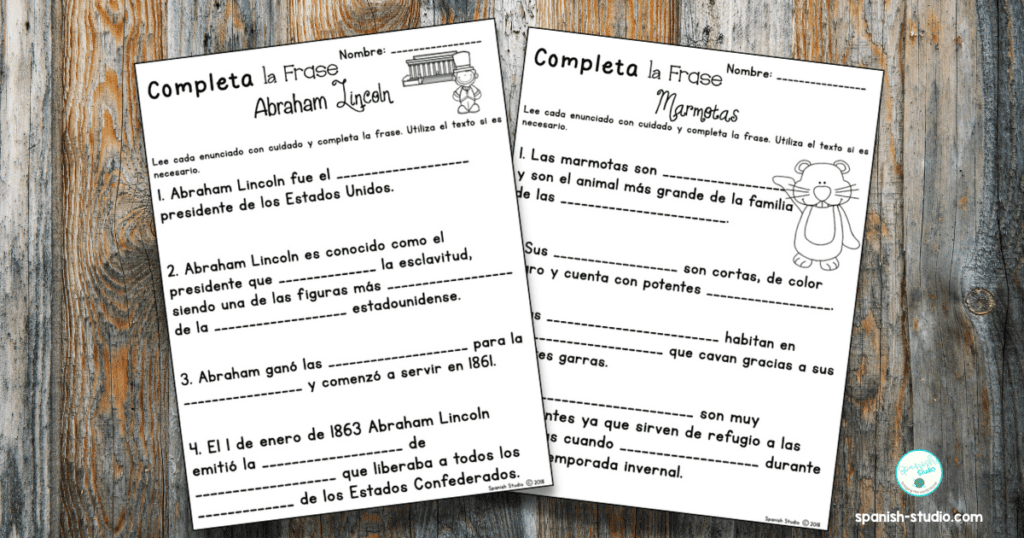 Nombre: ____________
Completa la Frase
Abraham Lincoln
Lee cada enunciado con cuidado y completa la frase. Utiliza el texto si es
necesario.
1. Abraham Lincoln fue el ____________
presidente de los Estados Unidos.
2. Abraham Lincoln es conocido como el
presidente que ____________ la esclavitud,
siendo una de las figuras más ____________
de la ____________ estadounidense.
3. Abraham ganó las ____________ para la
____________ y comenzó a servir en 1861.
4. El 1 de enero de 1863 Abraham Lincoln
emitió la ____________ de
____________ que liberaba a todos los
____________ de los Estados Confederados.
Spanish Studio © 2018
Nombre: ____________
Completa la Frase
Marmotas
Lee cada enunciado con cuidado y completa la frase. Utiliza el texto si es
necesario.
1. Las marmotas son ____________
y son el animal más grande de la familia
de las ____________.
Sus ____________ son cortas, de color
ro y cuenta con potentes ____________.
s ____________ habitan en
____________ que cavan gracias a sus
es garras.
____________ son muy
ntes ya que sirven de refugio a las
s cuando ____________ durante
emporada invernal.
Spanish Studio © 2018
Spanish
Studio
spanish-studio.com